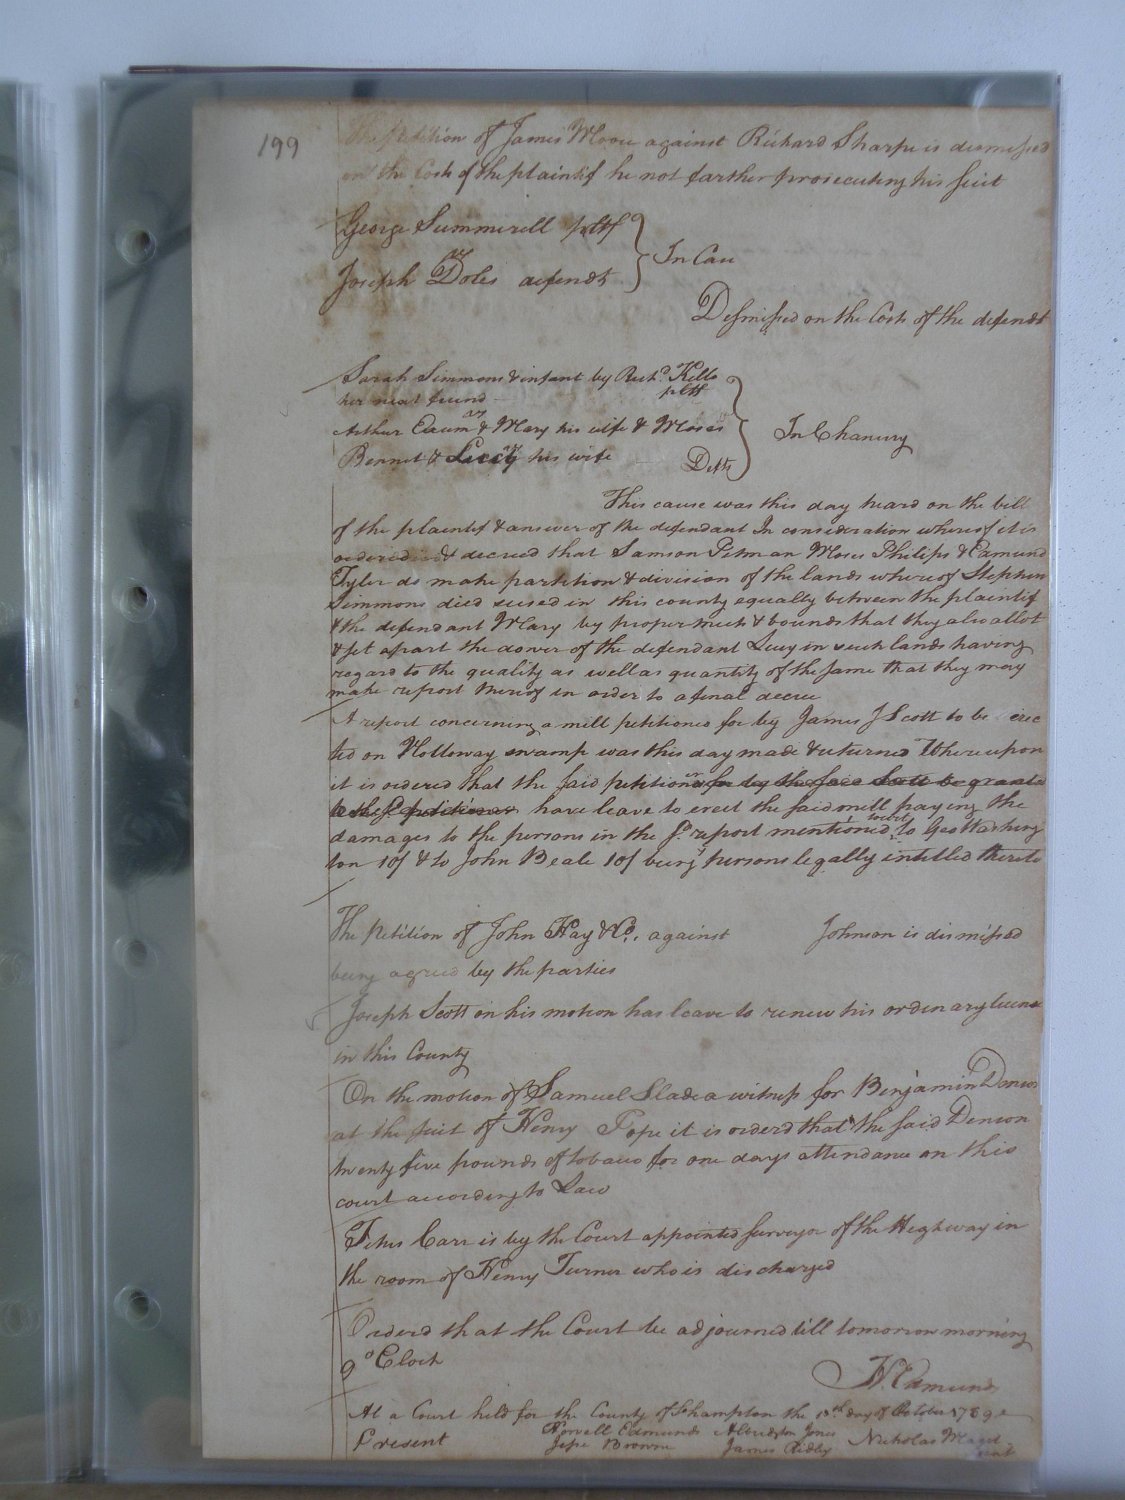 199
The petition of James Moore against Richard Sharpe is dismissed
on the Costs of the plaintif he not farther prosecuting his suit
George Summerell pltf
vs
In Cas
Joseph Doles defendt
Desmissed on the Costs of the defendt
Sarah Simmons & infant by Richd. Kello
her next friend pltff
vs
Arthur Exum & Mary his wife & Moses
Bennet & Lucy his wife Defts
In Chancery
This cause was this day heard on the bill
of the plaintif & answer of the defendant In consideration whereof it is
ordered & decreed that Samson Pitman Moses Philips & Edmund
Tyler do make partition & division of the lands whereof Stephen
Simmons died seised in this county equally between the plaintif
& the defendant Mary by proper meets & bounds that they also allot
& set apart the dower of the defendant Lucy in such lands having
regard to the quality as well as quantity of the same that they may
make report thereof in order to a final decree
A report concerning a mill petitioned for by James J Scott to be erec
ted on Holloway swamp was this day made & returned Whereupon
it is ordered that the said petitioner for by the said Scott be granted
to the sd petitioner have leave to erect the said mill paying the
damages to the persons in the sd. report mentioned to Geo Washing
ton 10/ & to John Beale 10/ being persons legally intitled thereto
The Petition of John Hay & Co. against Johnson is dismissed
being agreed by the parties
Joseph Scott on his motion has leave to renew his ordenary licence
in this County
On the motion of Samuel Slade a witness for Benjamin Denson
at the suit of Henry Pope it is orderd that the said Denson
twenty five pounds of tobacco for one days attendance on this
court according to Law
Titus Carr is by the Court appointed surveyor of the Heghway in
the room of Henry Turner who is discharged
Orderd that the Court be adjourned till tomorrow morning
9 oClock
H. Edmunds
At a Court held for the County of Shampton the day of October 1789
Present
Howell Edmunds Albridgton Jones
Nicholas
Jesse Browne James Ridley